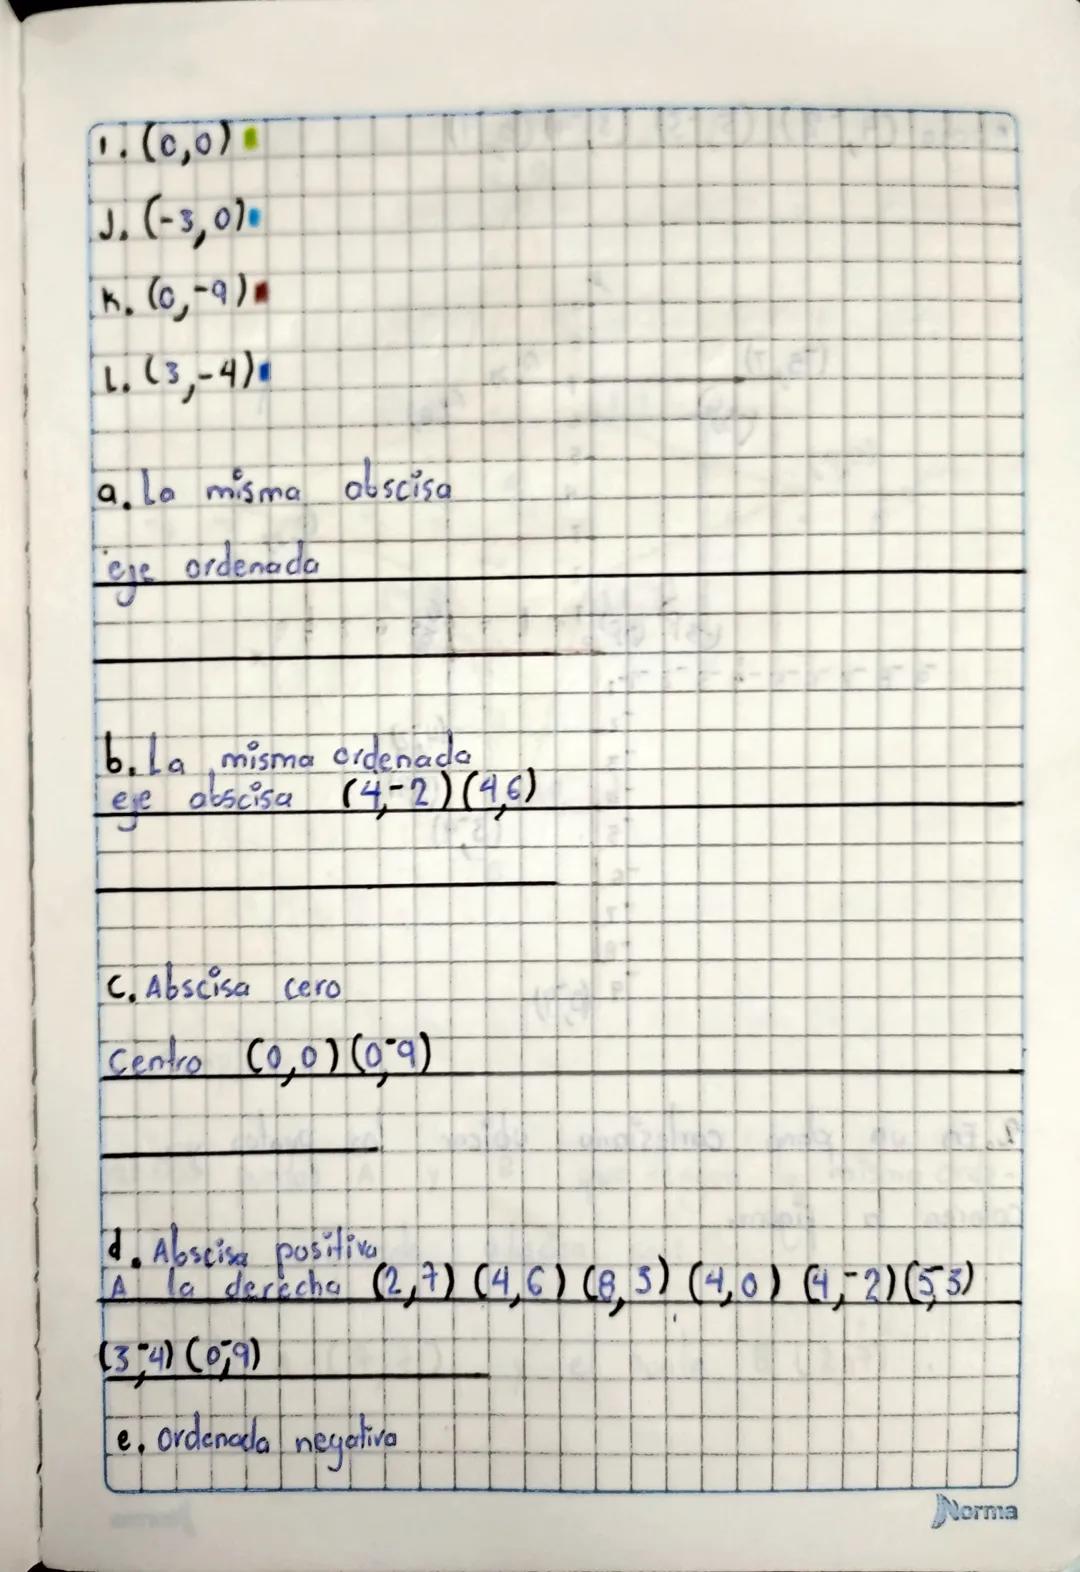 I. (0,0)
J. (-3,0)
K. (0,-9)
L. (3,-4)
a. La misma abscisa
eje ordenada
b. La misma ordenada
eje abscisa (4,-2) (4,6)
C. Abscisa cero
Centro (0,0) (0,-9)
d. Abscisa positiva
A la derecha (2,7) (4,6) (8,3) (4,0) (4,-2) (5,3)
(3,-4) (0,-9)
e. Ordenada negativa
Norma